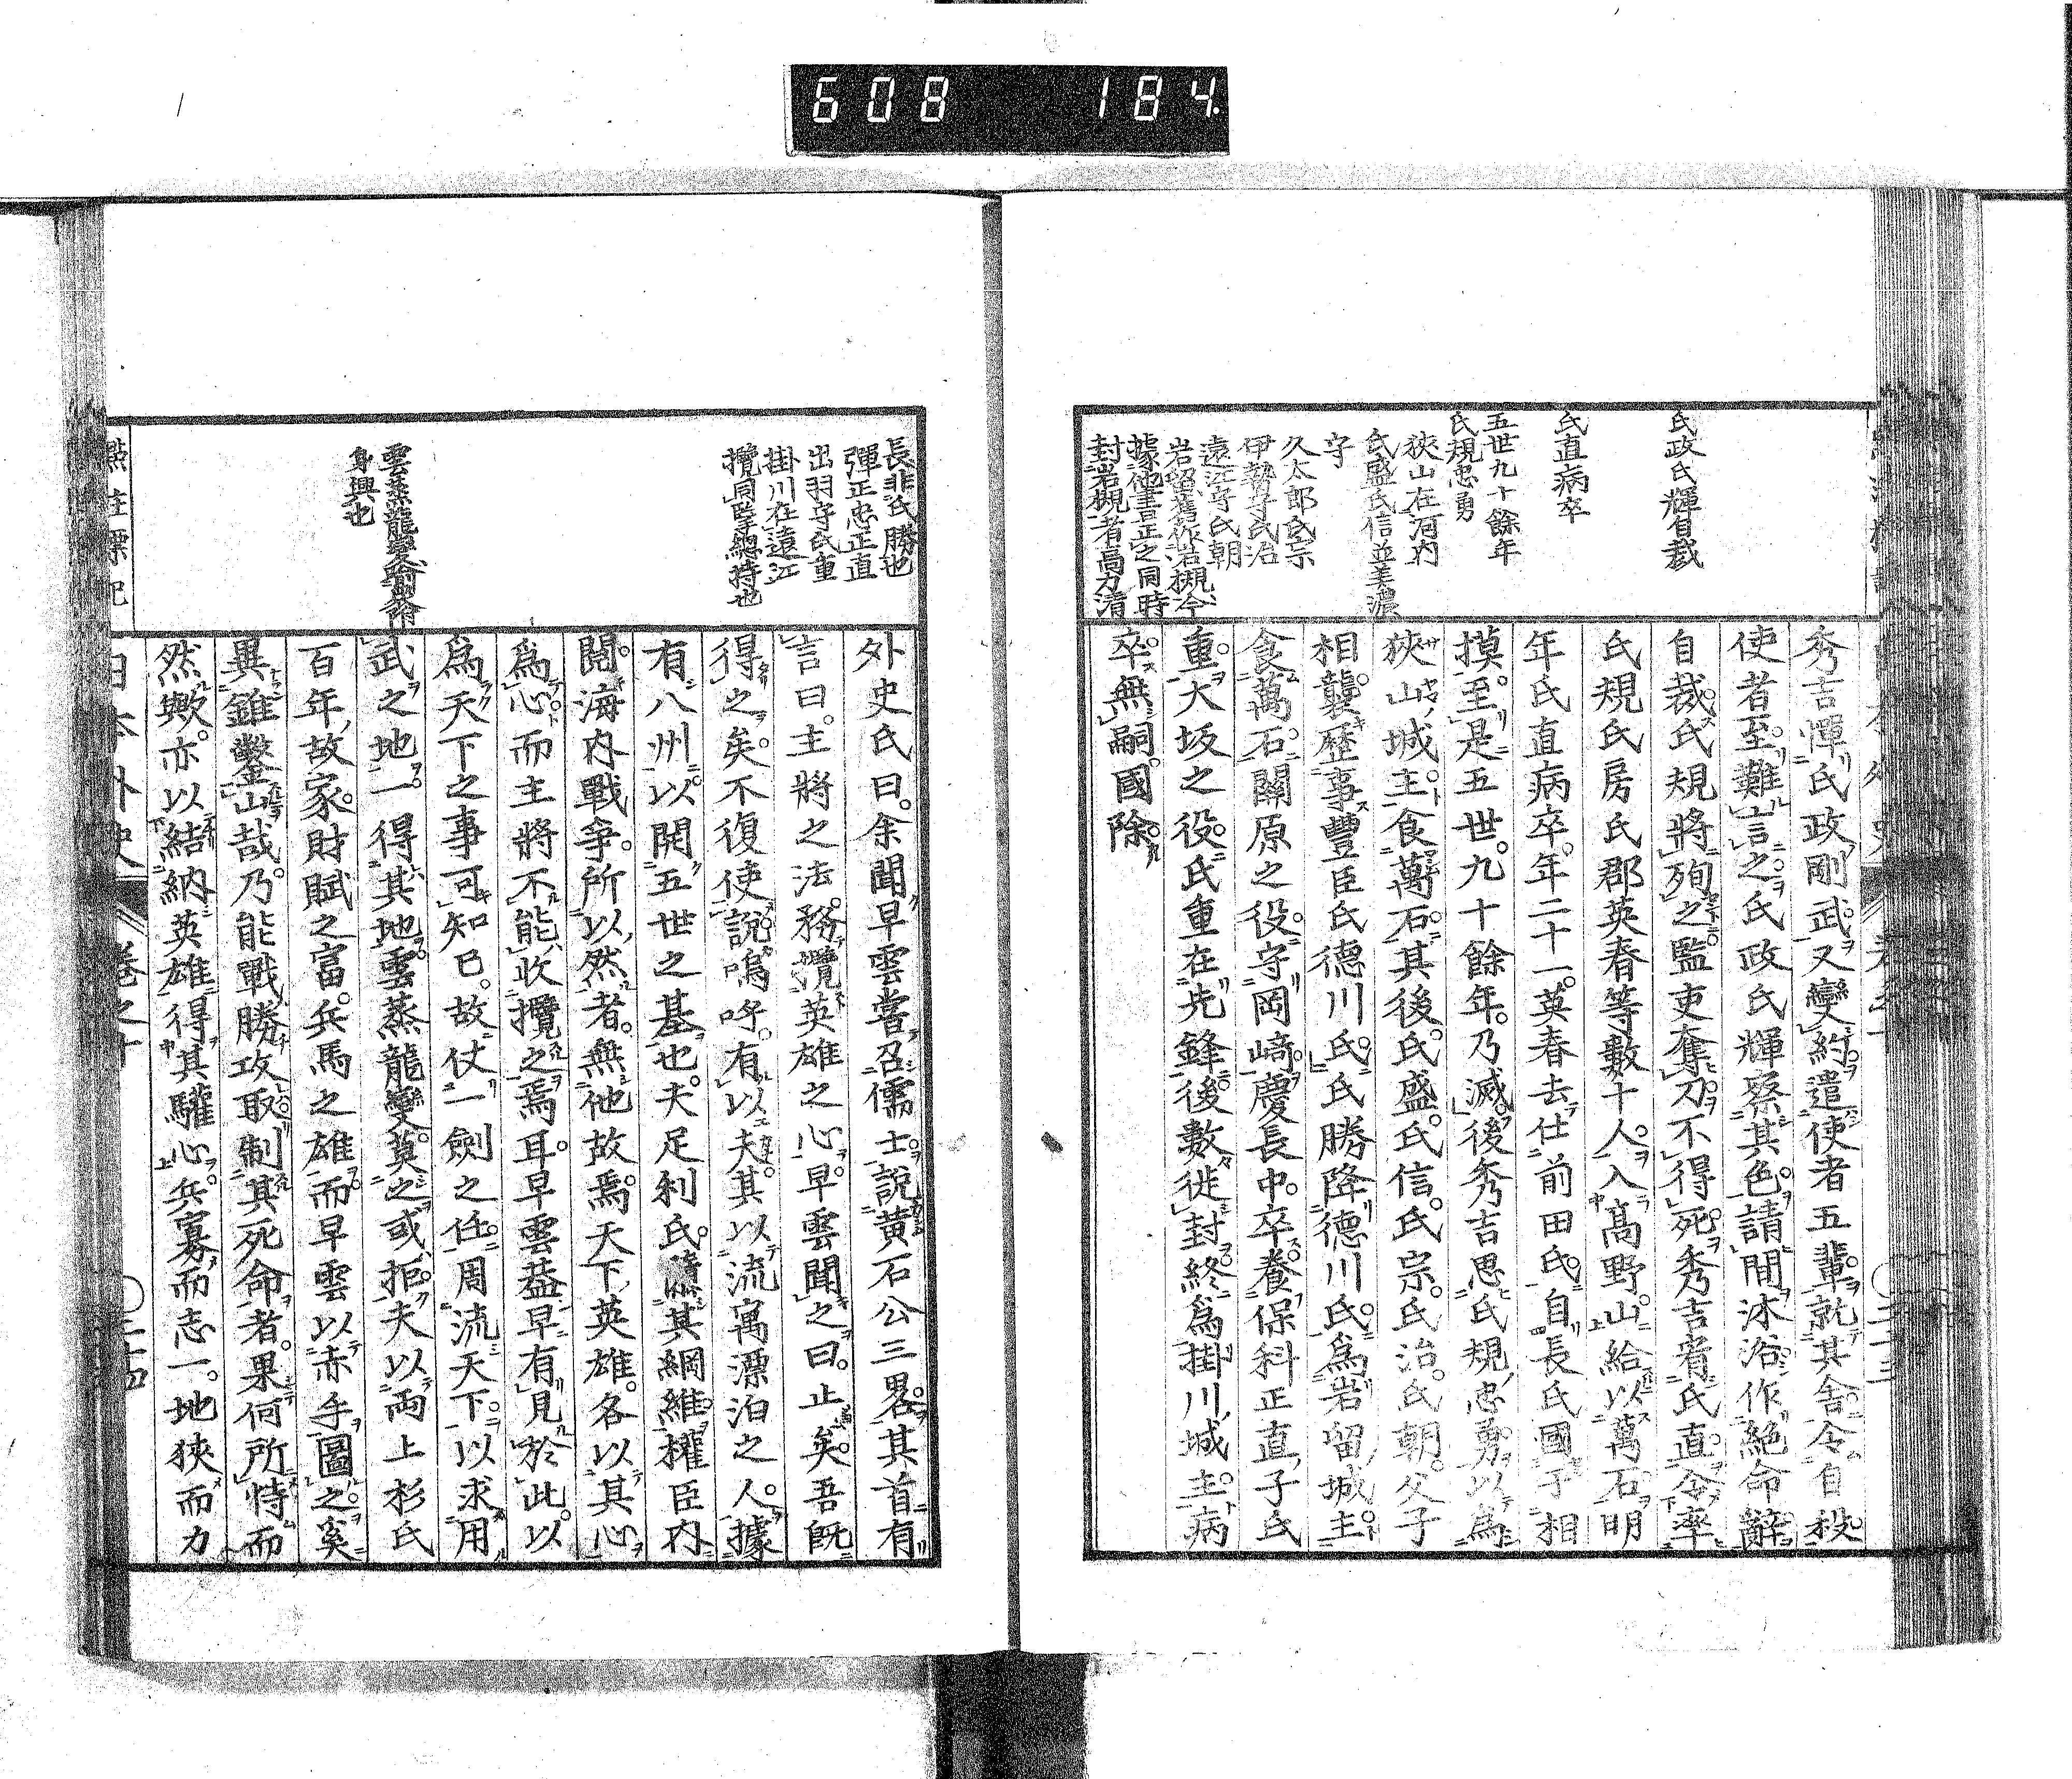 608 184
氏政氏輝自裁
氏直病卒
五世九十餘年
氏規忠勇
狹山在河內
氏盛氏信並美濃
守
久太郎氏宗
伊勢守氏治
遠江守氏朝
岩留舊作岩槻今
據他書正之同時
封岩槻者高力淸
秀吉憚氏政剛武又變約遣使者五輩就其舍令自殺
使者至難言之氏政氏輝察其色請間沐浴作絕命辭
自裁氏規將殉之監吏奪刀不得死秀吉宥氏直令率
氏規氏房氏郡英春等數十人入高野山給以萬石明
年氏直病卒年二十一英春去仕前田氏自長氏國于相
摸至是五世九十餘年乃滅後秀吉思氏規忠勇以爲
狹山城主食萬石其後氏盛氏信氏宗氏治氏朝父子
相襲歷事豐臣氏德川氏氏勝降德川氏爲岩留城主
食萬石關原之役守岡崎慶長中卒養保科正直子氏
重大坂之役氏重在先鋒後數徙封終爲掛川城主病
卒無嗣國除
長非氏勝也
彈正忠正直
出羽守氏重
掛川在遠江
攬同擥總持也
雲蒸龍變喻
身興也
外史氏曰余聞早雲嘗召儒士說黃石公三畧其首有
言曰主將之法務攬英雄之心早雲聞之曰止矣吾旣
得之矣不復使說嗚呼有以夫其以流寓漂泊之人據
有八州以開五世之基也夫足利氏其綱維權臣內
鬩海內戰爭所以然者無他故焉天下英雄各以其心
爲心而主將不能收攬之焉耳早雲葢早有見於此以
爲天下之事可知已故仗一劍之任周流天下以求用
武之地一得其地雲蒸龍變莫之或拒夫以兩上杉氏
百年故家財賦之富兵馬之雄而早雲以赤手圖之奚
異錐鑿山哉乃能戰勝攻取制其死命者果何所恃而
然歟亦以結納英雄得其驩心兵寡而志一地狹而力
日本外史 卷之十